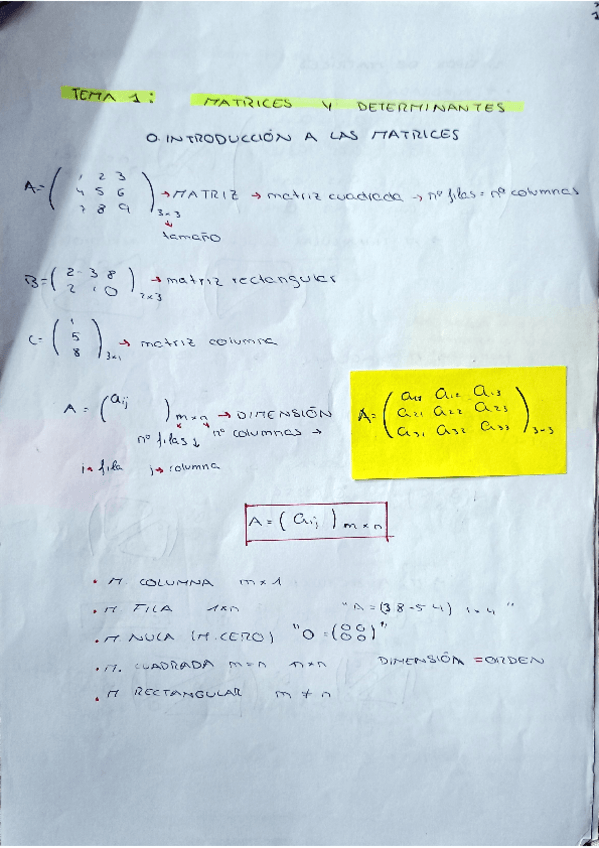 TEMA 1: MATRICES Y DETERMINANTES
0. INTRODUCCIÓN A LAS MATRICES
A= ( 1 2 3
4 5 6
7 8 9 ) 3×3 → MATRIZ → matriz cuadrada → nº filas = nº columnas
↓
tamaño
B= ( 2 -3 8
2 1 0 ) 2×3 → matriz rectangular
C= ( 1
5
8 ) 3×1 → matriz columna
A = ( aij ) m×n → DIMENSIÓN
nº filas ↓ nº columnas →
i→ fila j→ columna
A= ( a11 a12 a13
a21 a22 a23
a31 a32 a33 ) 3×3
A = ( aij ) m×n
• M. COLUMNA m×1
• M FILA 1×n "A=(3 8 -5 4) 1×4"
• M NULA (M.CERO) "O = (0 0
0 0)"
• M. CUADRADA m=n n×n DIMENSIÓN = ORDEN
• M RECTANGULAR m ≠ n